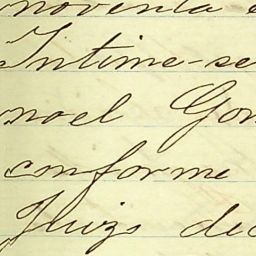 noventa e
Intime-se
noel Gon
conforme
Juizo dec